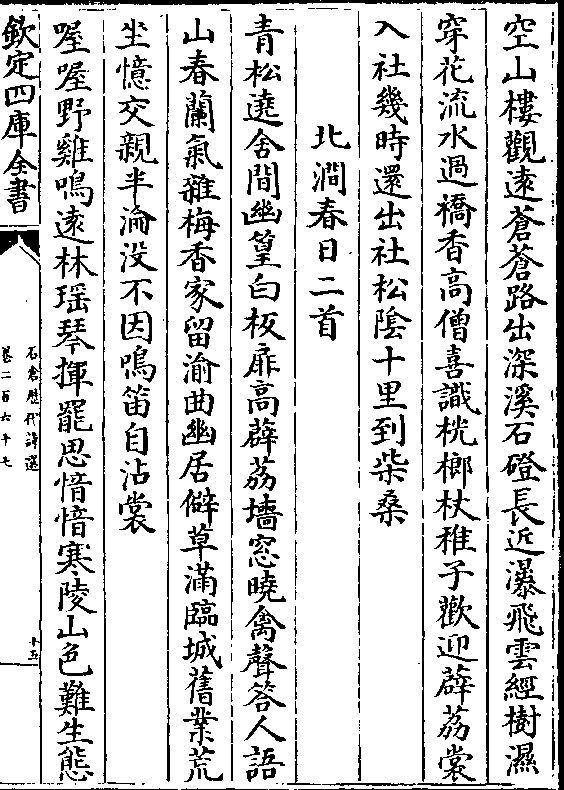 空山樓觀遠蒼蒼路出深溪石磴長近瀑飛雲經樹濕
穿花流水過橋香高僧喜識桄榔杖稚子歡迎薜荔裳
入社幾時還出社松陰十里到柴桑
北澗春日二首
青松遶舍間幽篁白板扉高薜荔墻窓曉禽聲答人語
山春蘭氣雜梅香家留渝曲幽居僻草滿臨城舊業荒
坐憶交親半淪没不因鳴笛自沾裳
喔喔野雞鳴遠林瑶琴揮罷思愔愔寒陵山色難生態
欽定四庫全書
石倉歷代詩選
卷二百六十七
十五